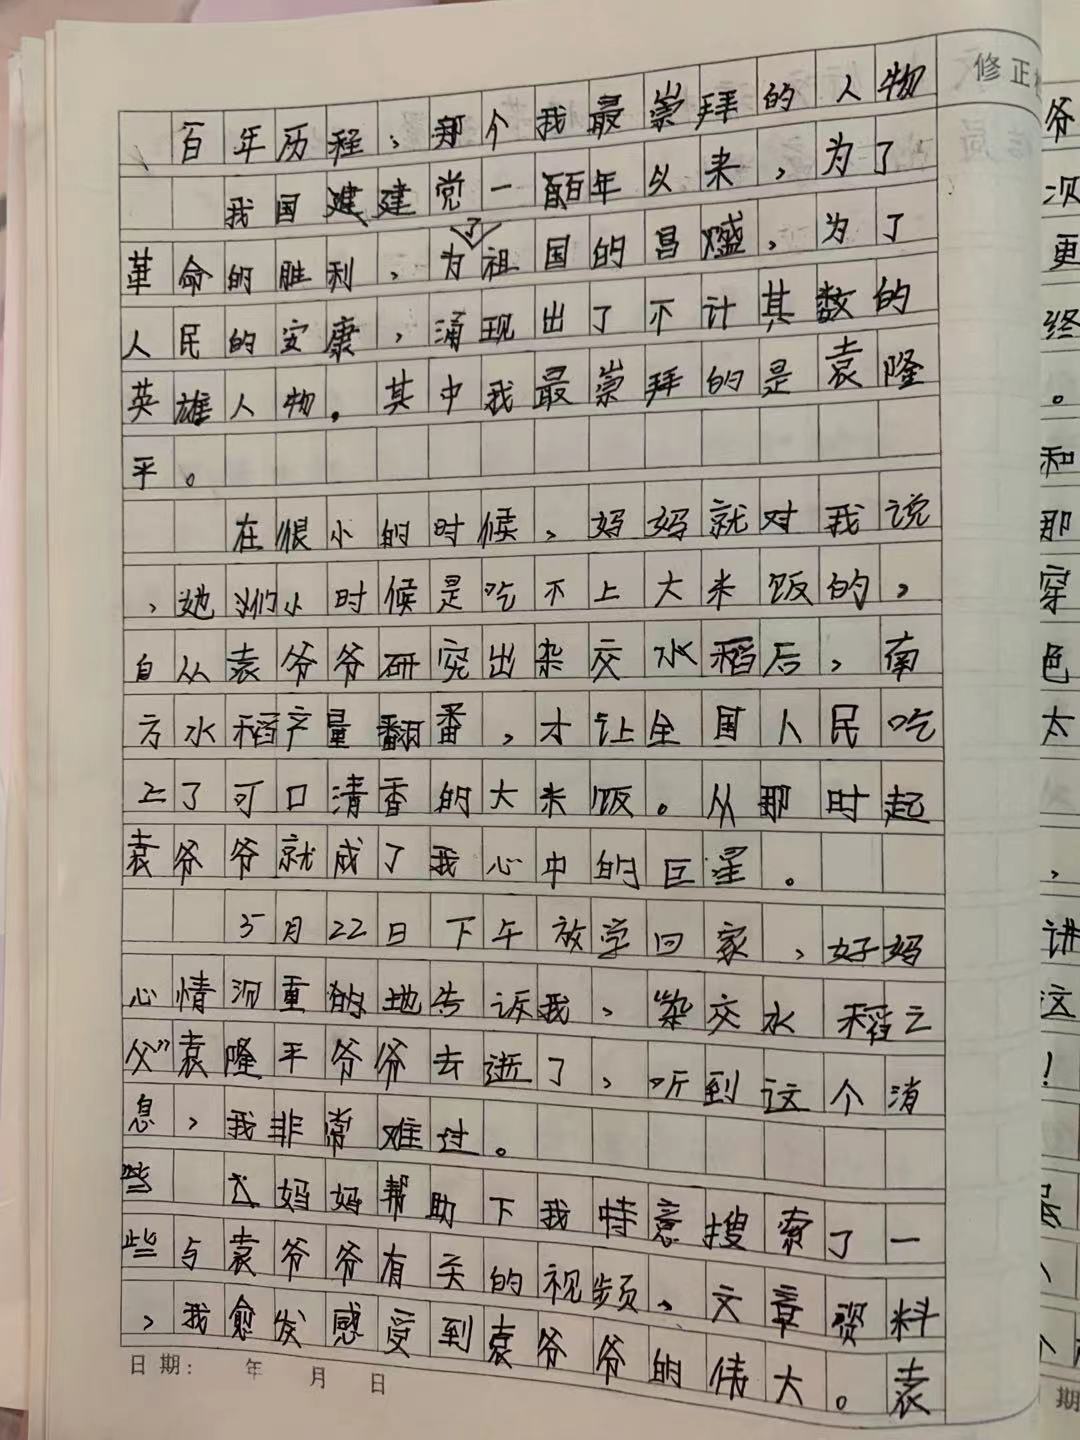 修正
百年历程，那个我最崇拜的人物
我国建建党一百年以来，为了
革命的胜利，为了祖国的昌盛，为了
人民的安康，涌现出了不计其数的
英雄人物。其中我最崇拜的是袁隆
平。
在很小的时候，妈妈就对我说
，她们小时候是吃不上大米饭的，
自从袁爷爷研究出杂交水稻后，南
方水稻产量翻番，才让全国人民吃
上了可口清香的大米饭。从那时起
袁爷爷就成了我心中的巨星。
5月22日下午放学回家，好妈
心情沉重的地告诉我，"杂交水稻之
父"袁隆平爷爷去逝了，听到这个消
息，我非常难过。
些 妈妈帮助下我特意搜索了一
些与袁爷爷有关的视频、文章资料
，我愈发感受到袁爷爷的伟大。袁
日期： 年 月 日
爷
次
更
终
。
和
那
穿
色
太
，
讲
这
！
期